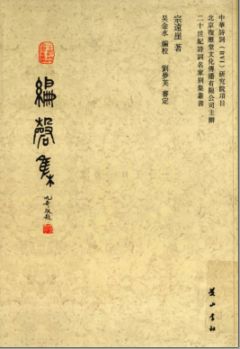 中華詩詞（BVI）研究院項目
北京文化傳播有限公司主辦
二十世紀詩詞名家別集叢書
宗遠崖 著
吳金水 編校 劉夢芙 審定
編磬集
黃山書社